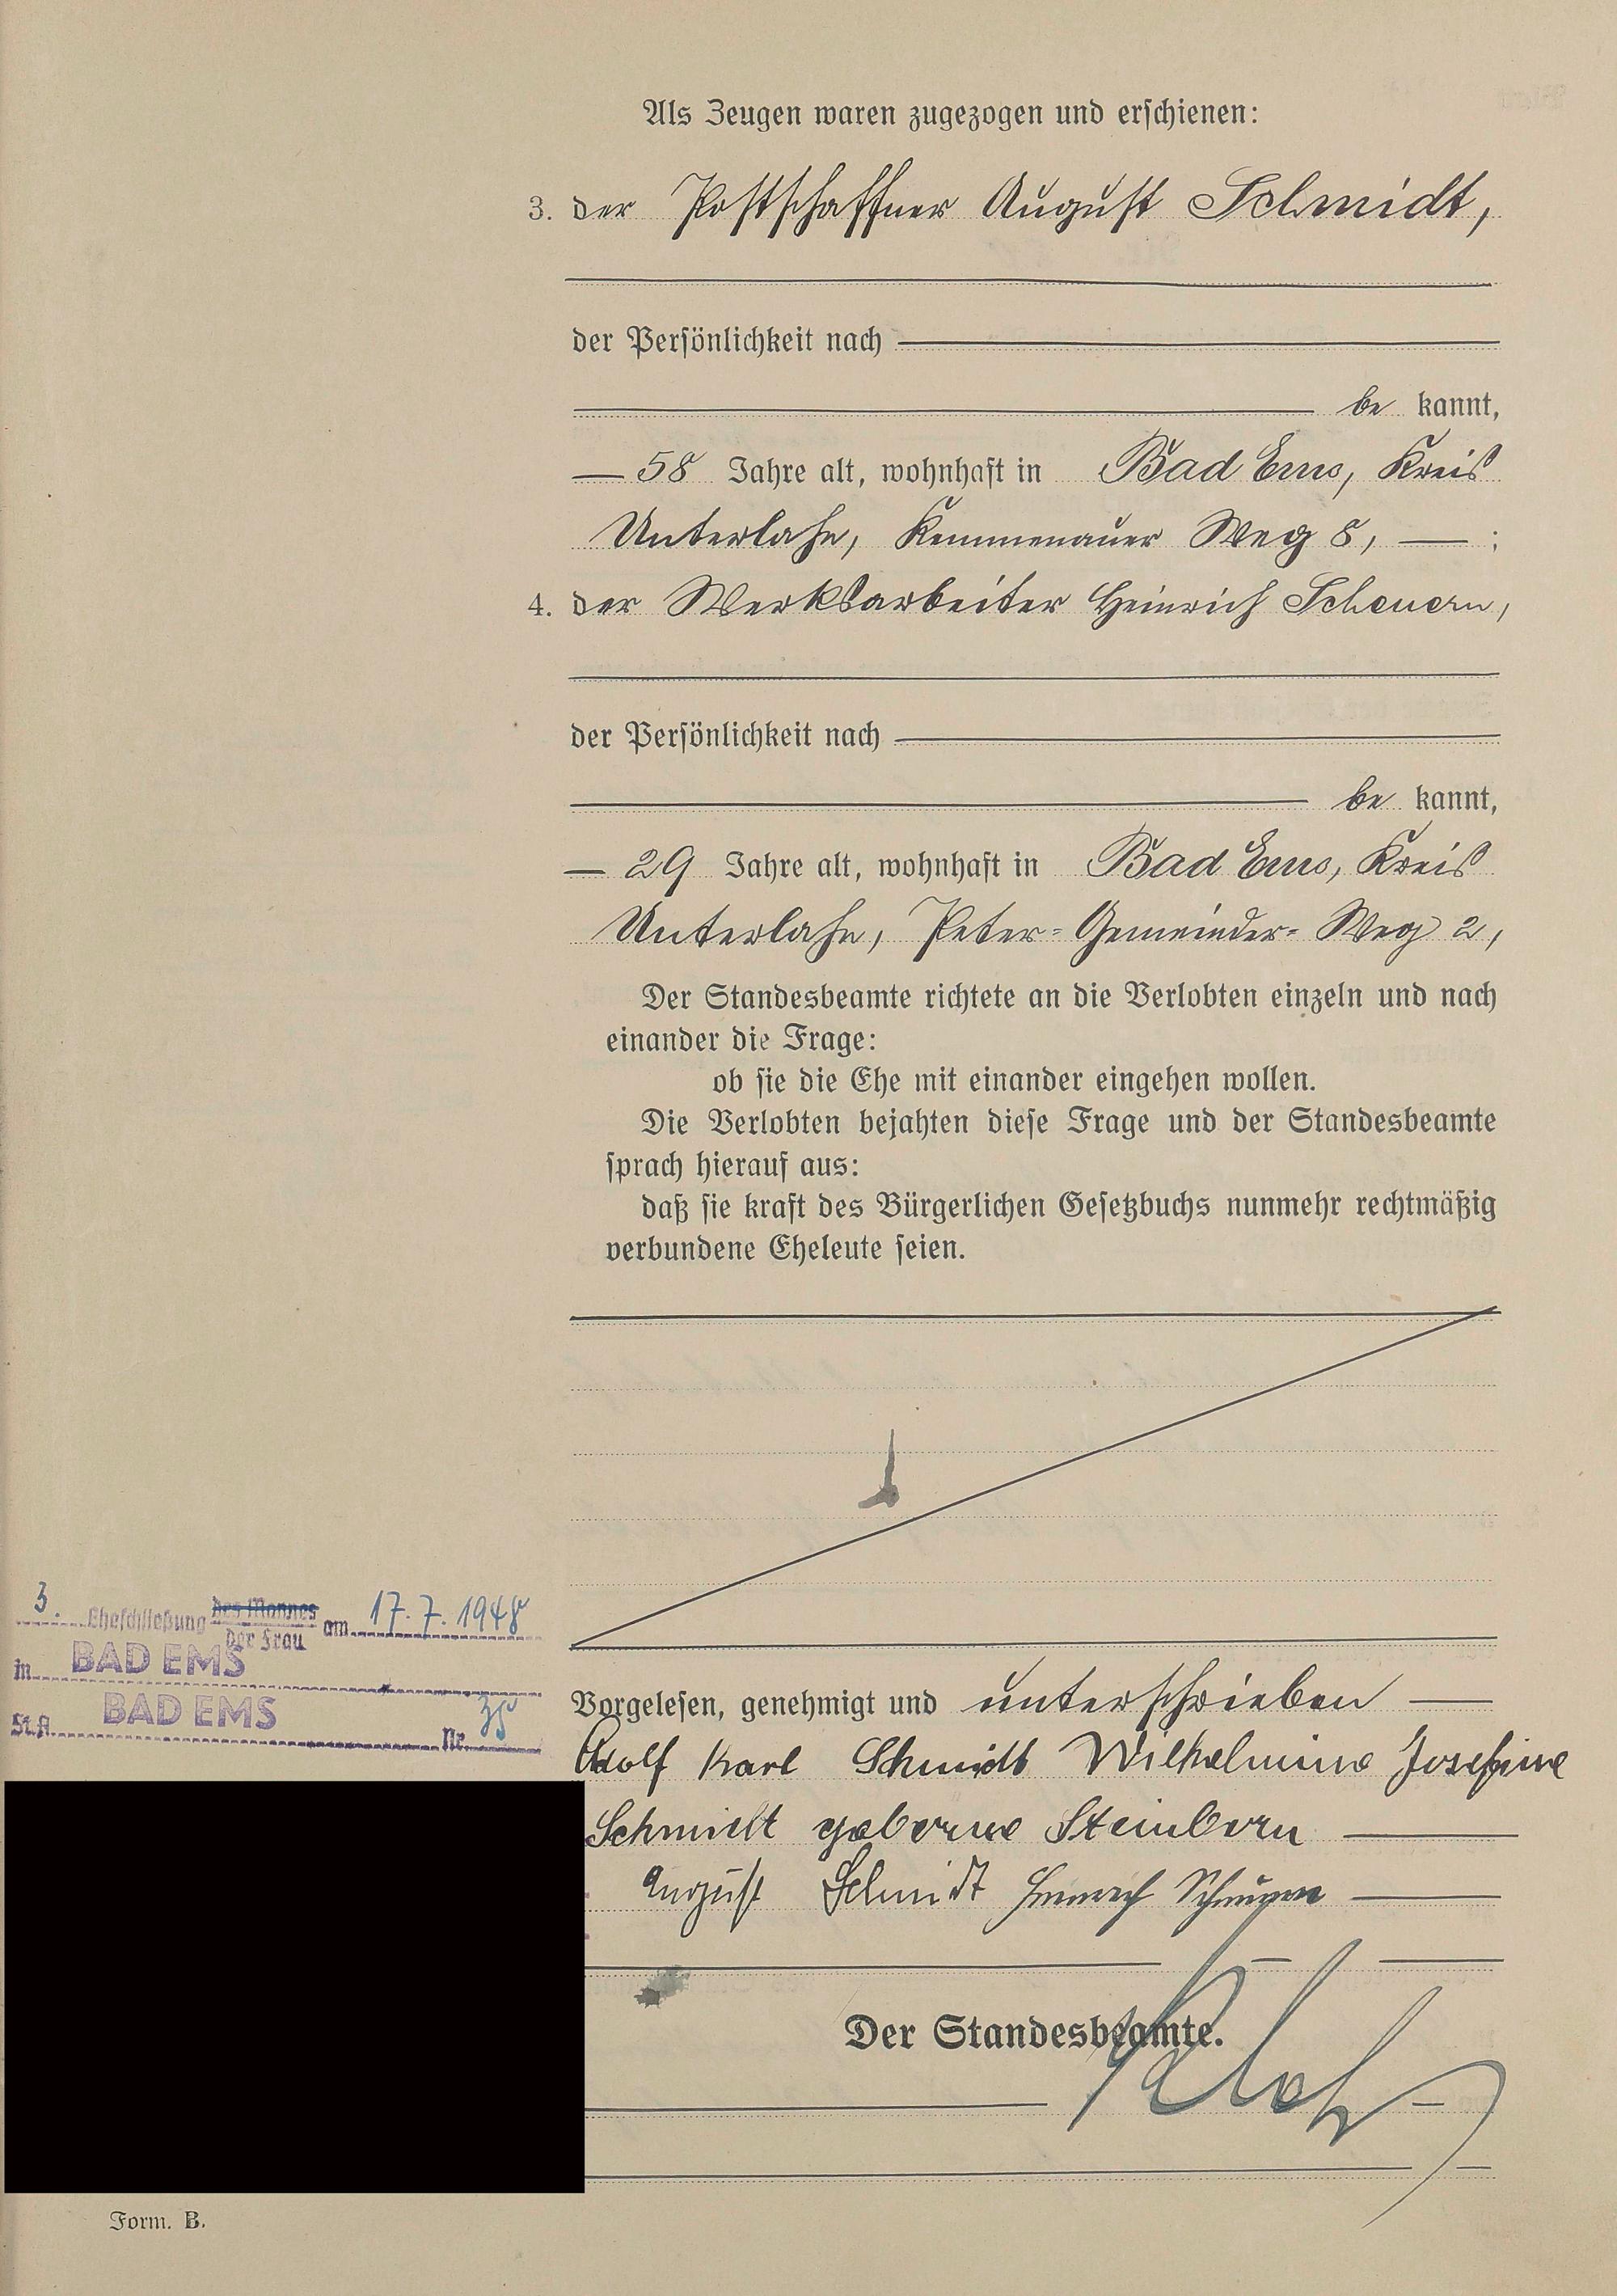 Als Zeugen waren zugezogen und erschienen:
3. der Postschaffner August Schmidt,
der Persönlichkeit nach
be kannt,
58 Jahre alt, wohnhaft in Bad Ems, Kreis
Unterlahn, Kemmenauer Weg 8, — ;
4. der Werksarbeiter Heinrich Scheuern,
der Persönlichkeit nach
be kannt,
29 Jahre alt, wohnhaft in Bad Ems, Kreis
Unterlahn, Peter-Gemeinder-Weg 2,
Der Standesbeamte richtete an die Verlobten einzeln und nach
einander die Frage:
ob sie die Ehe mit einander eingehen wollen.
Die Verlobten bejahten diese Frage und der Standesbeamte
sprach hierauf aus:
daß sie kraft des Bürgerlichen Gesetzbuchs nunmehr rechtmäßig
verbundene Eheleute seien.
3. Eheschließung des Mannes der Frau am 17.7.1948
in BAD EMS
St.A. BAD EMS Nr.
Vorgelesen, genehmigt und unterschrieben
Adolf Karl Schmidt Wilhelmine Josefine
Schmidt geborene Steinborn
August Schmidt Heinrich Scheuern
Der Standesbeamte.
Form. B.